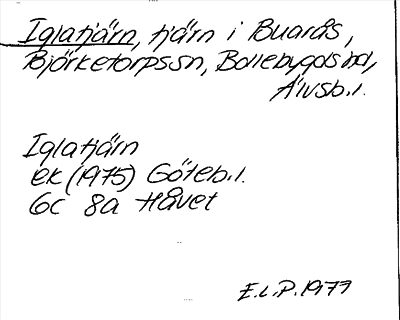 Iglatjärn, tjärn i Buarås,
Björketorpssn, Bollebygds hd,
Älvsb.l.
Iglatjärn
EK (1975) Göteb.l.
6C 8a Håvet
E.L.P. 1977